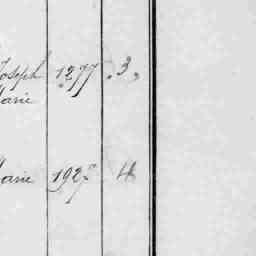 Joseph 1277 3
Marie
Marie 192 4